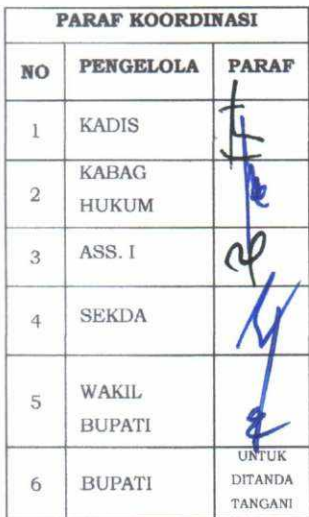 PARAF KOORDINASI
NO PENGELOLA PARAF
1 KADIS
2 KABAG HUKUM
3 ASS. I
4 SEKDA
5 WAKIL BUPATI
6 BUPATI UNTUK DITANDA TANGANI